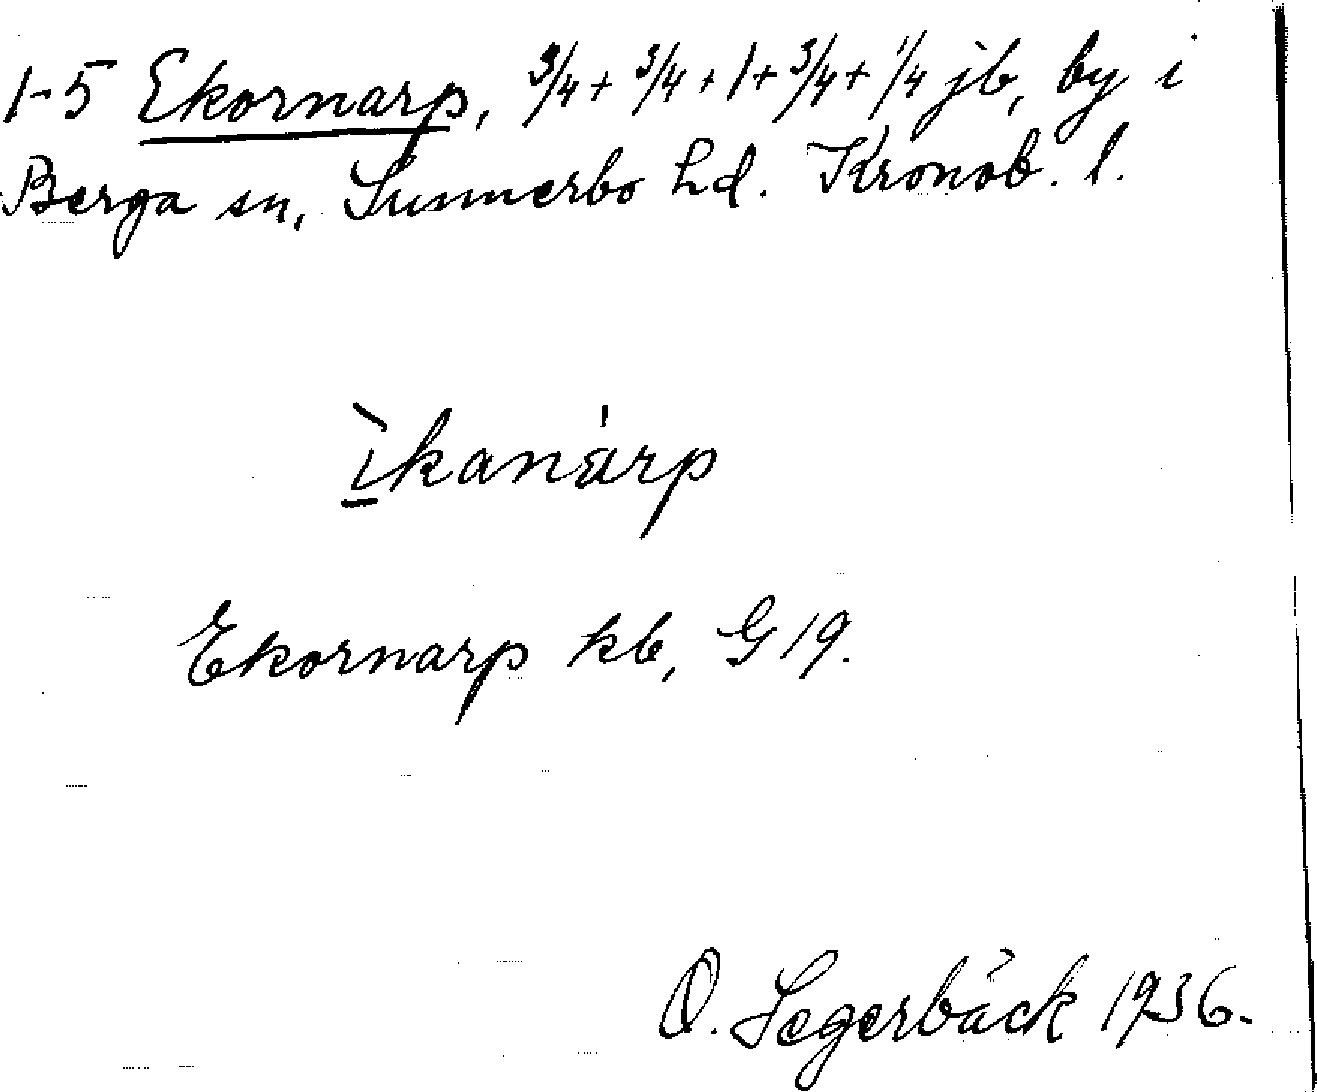 1-5 Ekornarp, 3/4 + 3/4 + 1 + 3/4 + 1/4 jb, by i
Berga sn, Sunnerbo hd. Kronob. l.
ìkanárp
Ekornarp kb, G 19.
O. Segerbäck 1936.